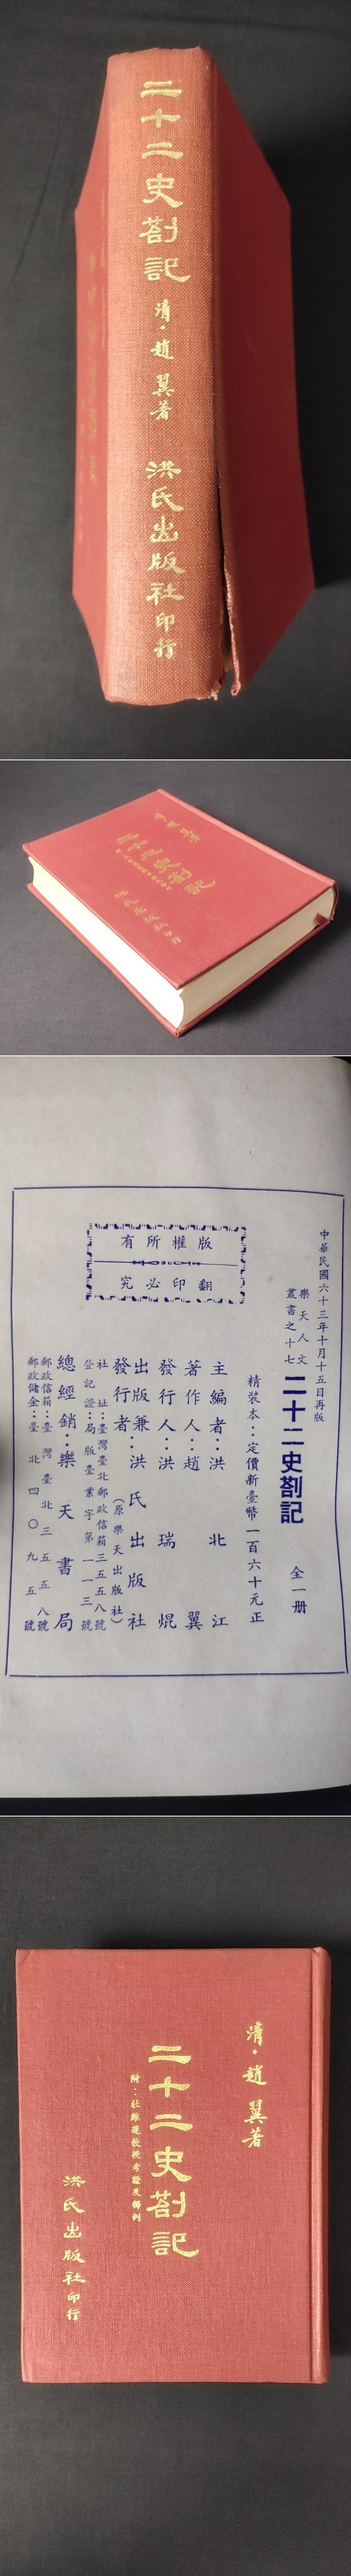 二十二史劄記
清·趙翼著
洪氏出版社印行
二十二史劄記
中華民國六十三年十月十五日再版
樂天人文
叢書之十七
二十二史劄記
全一册
精裝本：定價新臺幣一百六十元正
主編者：洪北江
著作人：趙翼
發行人：洪瑞焜
出版兼
發行者：洪氏出版社
（原樂天出版社）
社址：臺灣臺北郵政信箱三五五八號
登記證：局版臺業字第一一三號
總經銷：樂天書局
郵政信箱：臺灣臺北三五五八號
郵政儲金：臺北四〇九五號
版權所有
翻印必究
清·趙翼著
二十二史劄記
附：杜維運教授考證及釋例
洪氏出版社印行